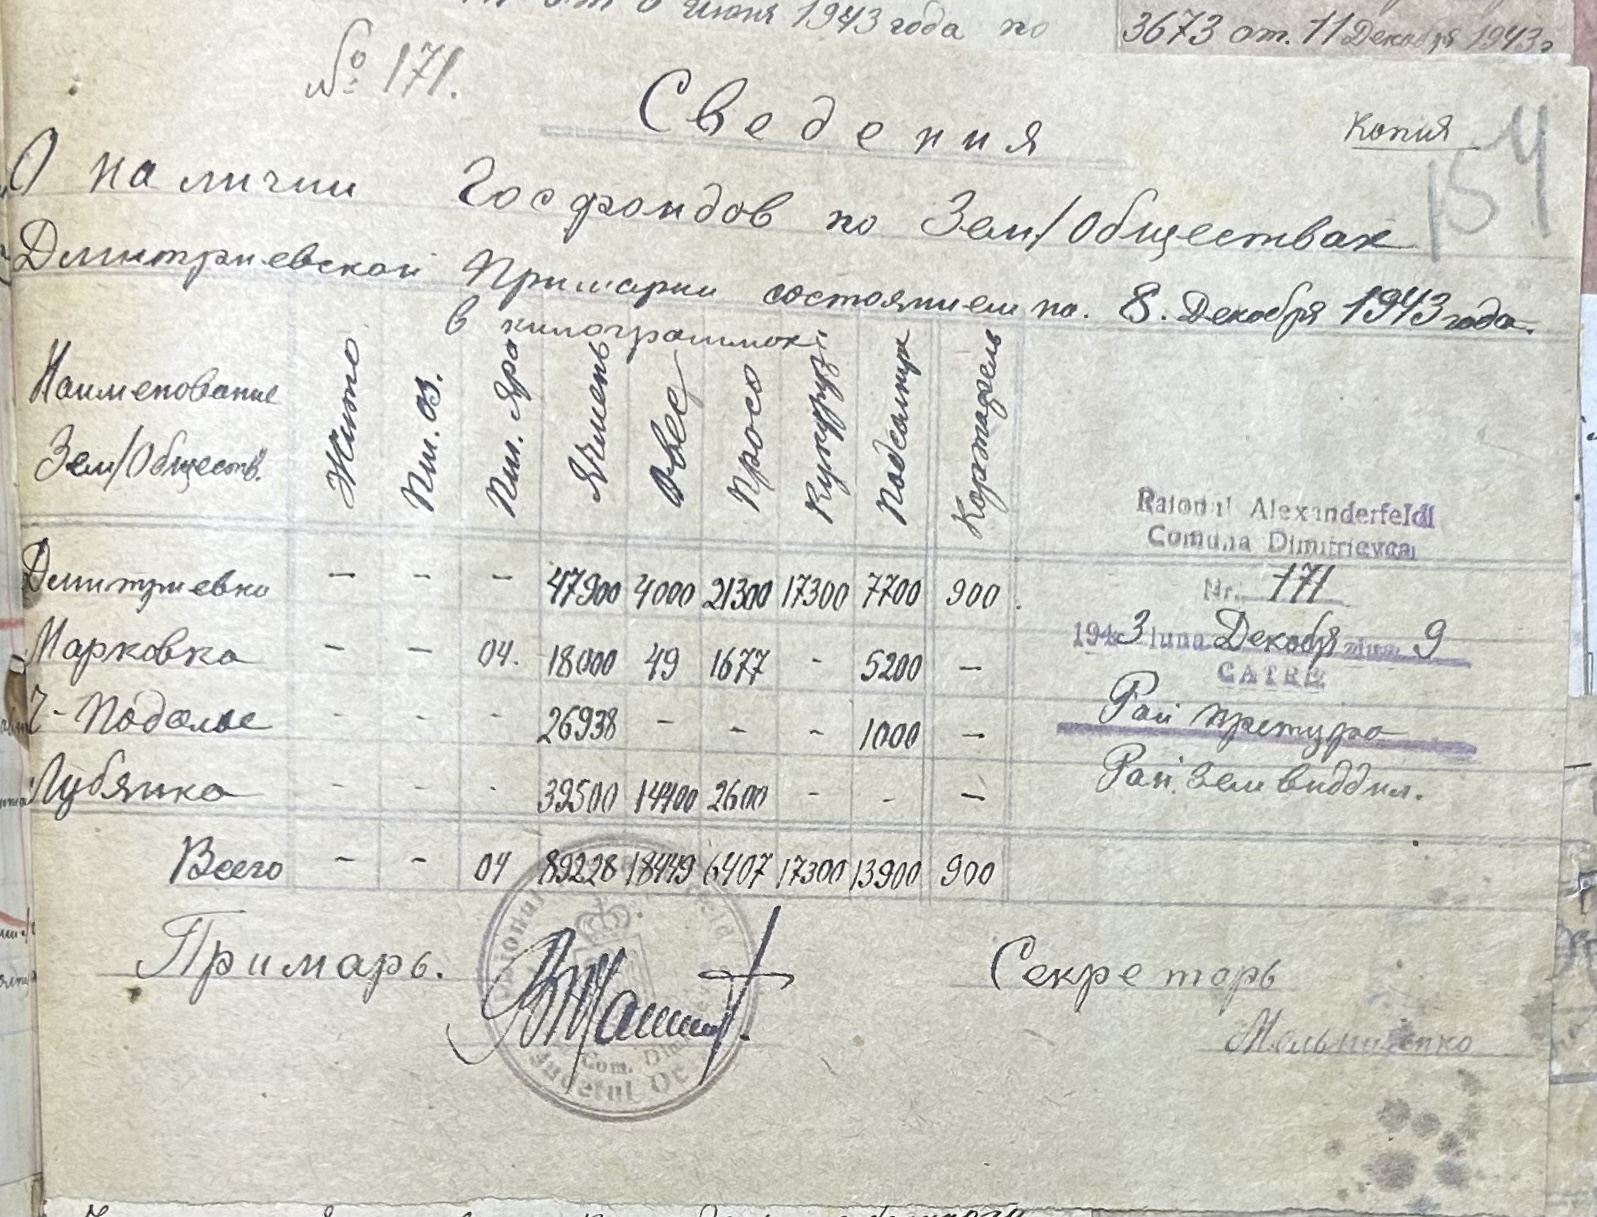 июня 1943 года по
3673 от. 11 Декабря 1943г
№ 171.
Сведения
Копия
154
О наличии Госфондов по Зем/Обществах
Дмитриевской Примарии состоянием на. 8. Декабря 1943 года.
в килограммах:
Наименование Зем/Обществ.
Жито
Пш. оз.
Пш. Яра
Ячмень
Овес
Просо
Кукуруз
Подсолнух
Картофель
Raionul Alexanderfeld
Comuna Dimitrievca
Дмитриевка – – – 47900 4000 21300 17300 7700 900.
Nr. 171
Марковка – – 04. 18000 49 1677 - 5200 –
1943 luna Декабря ziua 9
CATRE
Ч-Подолье - - - 26938 – - - 1000 –
Рай претура
Лубянка - - - 39500 14400 2600 - - –
Рай. Зем виддил.
Всего – - 04 89228 18449 6407 17300 13900 900
Примарь.
Секретарь
Мельниченко
Com.
Judetul Oc